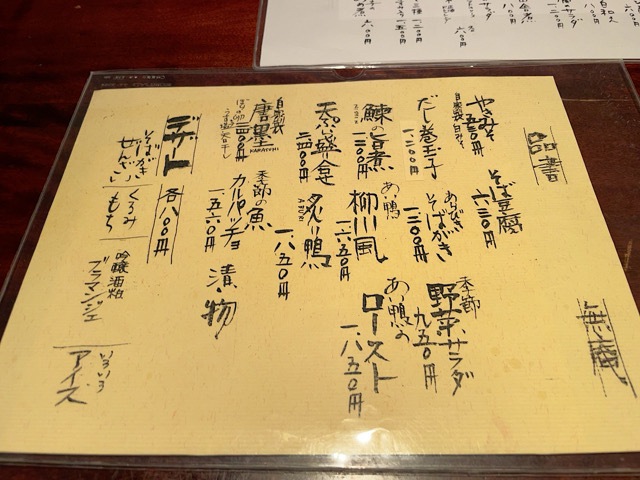 品書
無庵
やきみそ
五五〇円
自家製白みそ
そば豆腐
六三〇円
だし巻玉子
一二〇〇円
あらびき
そばがき
一三〇〇円
季節
野菜サラダ
九五〇円
鰊の旨煮
一三〇〇円
あい鴨
柳川風
一六五〇円
あい鴨の
ロースト
一、八五〇円
天ぷら盛合せ
二四〇〇円
炙り鴨
一八五〇円
自家製
唐墨
KARASUMI
一四〇〇円
季節の魚
カルパッチョ
一五六〇円
漬物
デザート
各八〇〇円
そばがき
ぜんざい
くるみ
もち
吟醸酒粕
ブラマンジェ
いろいろ
アイス